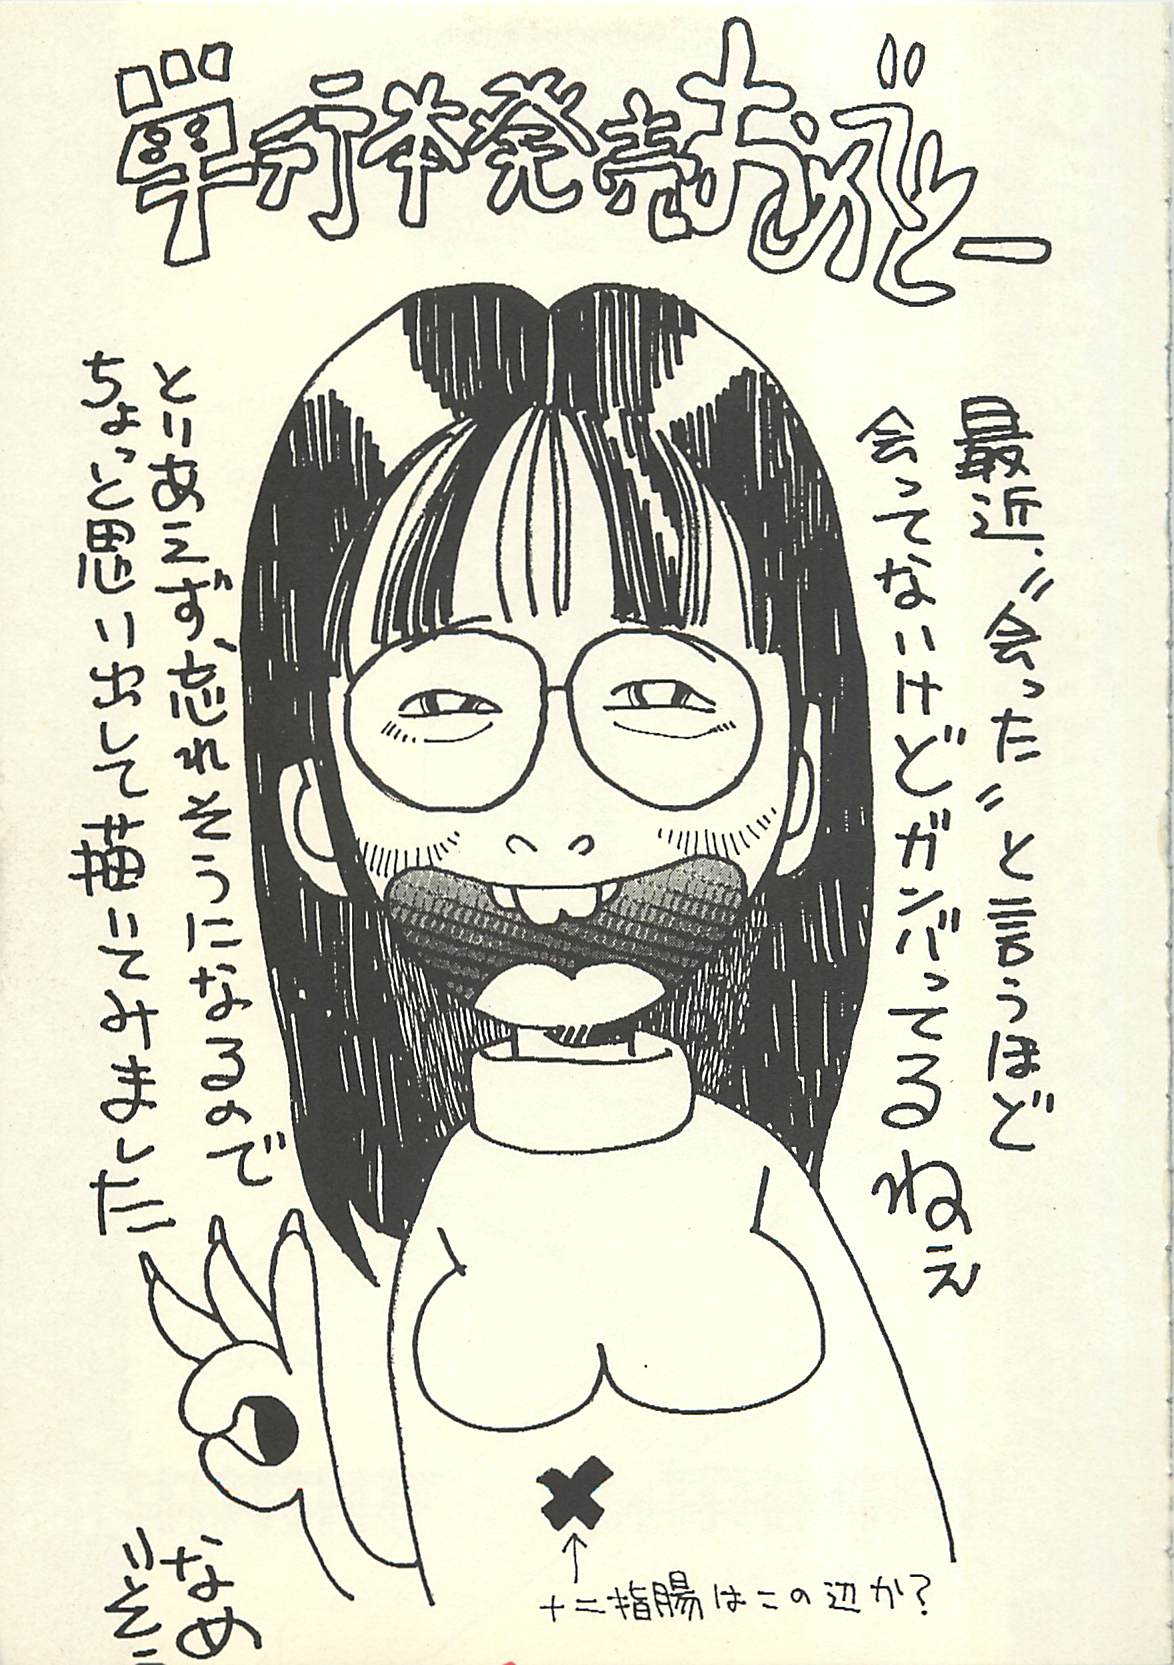 單行本発売おめでとー
最近、〝会った〟と言うほど
会ってないけどガンバってるねえ
とりあえず、忘れそうになるので
ちょっと思い出して描いてみました
十二指腸はこの辺か?
なめ